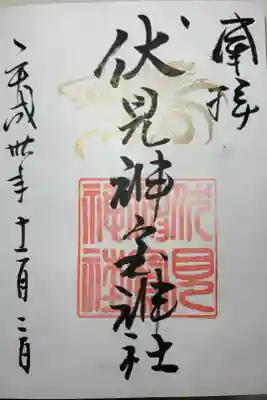 奉拝
伏見神宝神社
平成卅年十一月二日
伏見神寶神社